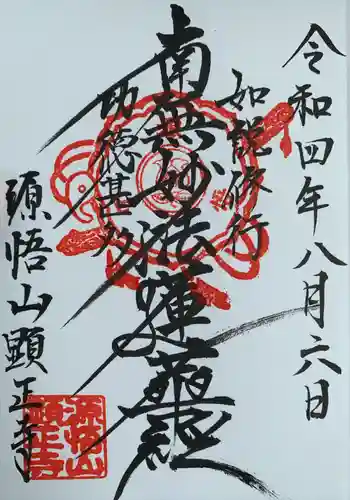 令和四年八月六日
如説修行
南無妙法蓮華経
功徳甚多
源悟山顕正寺
源悟山
顕正寺